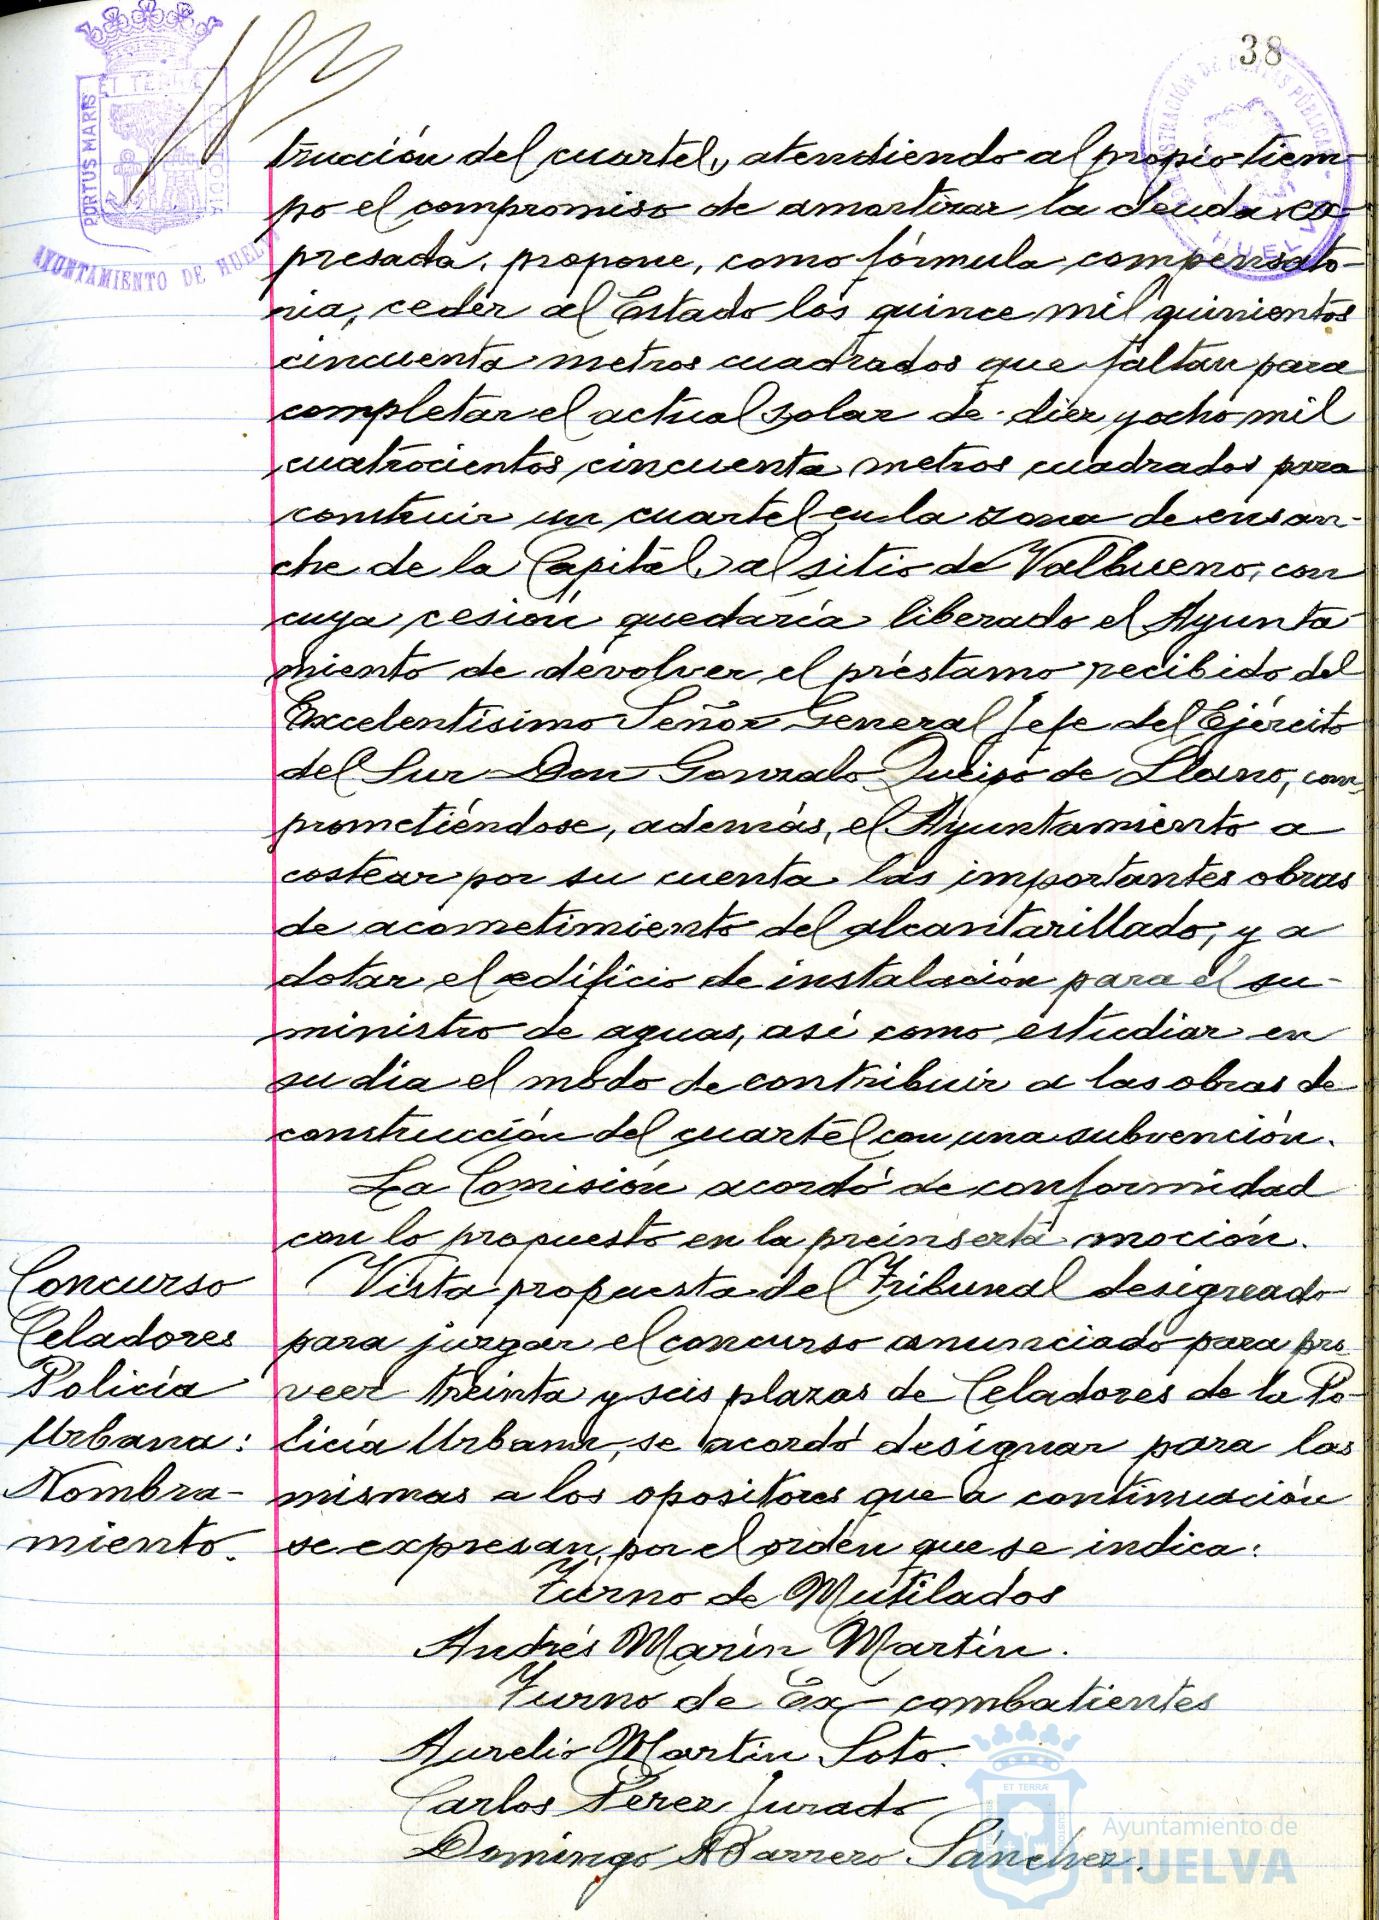 38
PORTUS MARIS
ET TERRÆ
CUSTODIA
AYUNTAMIENTO DE HUELVA
HUELVA
trucción del cuartel, atendiendo al propio tiem-
po el compromiso de amortizar la deuda ex-
presada, propone, como fórmula compensato-
ria, ceder al Estado los quince mil quinientos
cincuenta metros cuadrados que faltan para
completar el actual solar de diez y ocho mil
cuatrocientos cincuenta metros cuadrados para
construir un cuartel en la zona de ensan-
che de la Capital, al sitio de Valbueno, con
cuya cesión quedaría liberado el Ayunta-
miento de devolver el préstamo recibido del
Excelentísimo Señor General Jefe del Ejército
del Sur Don Gonzalo Queipo de Llano, com-
prometiéndose, además, el Ayuntamiento a
costear por su cuenta las importantes obras
de acometimiento del alcantarillado, y a
dotar el edificio de instalación para el su-
ministro de aguas, así como estudiar en
su dia el modo de contribuir a las obras de
construcción del cuartel con una subvención.
La Comisión acordó de conformidad
con lo propuesto en la preinserta moción.
Concurso
Celadores
Policía
Urbana:
Nombra-
miento.
Vista propuesta del Tribunal designado
para juzgar el concurso anunciado para pro-
veer treinta y seis plazas de Celadores de la Po-
licía Urbana, se acordó designar para las
mismas a los opositores que a continuación
se expresan, por el orden que se indica:
Turno de Mutilados
Andrés Marín Martín.
Turno de Ex-combatientes
Aurelio Martin Soto.
Carlos Pérez Jurado
Domingo Barrero Sánchez.
ET TERRÆ
Ayuntamiento de
HUELVA